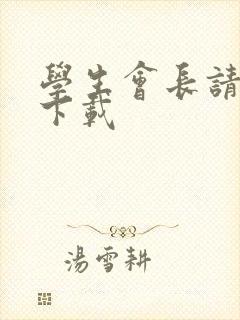 學生會長請
下載
湯雪耕